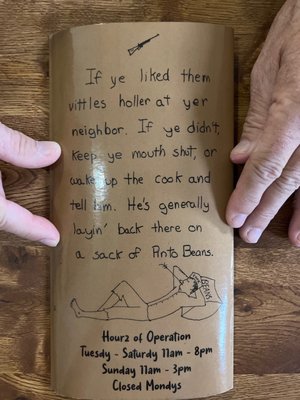 If ye liked them
vittles holler at yer
neighbor. If ye didn't,
keep ye mouth shut, or
wake up the cook and
tell him. He's generally
layin' back there on
a sack of Pinto Beans.
BEANS
Hourz of Operation
Tuesdy - Saturdy 11am - 8pm
Sunday 11am - 3pm
Closed Mondys